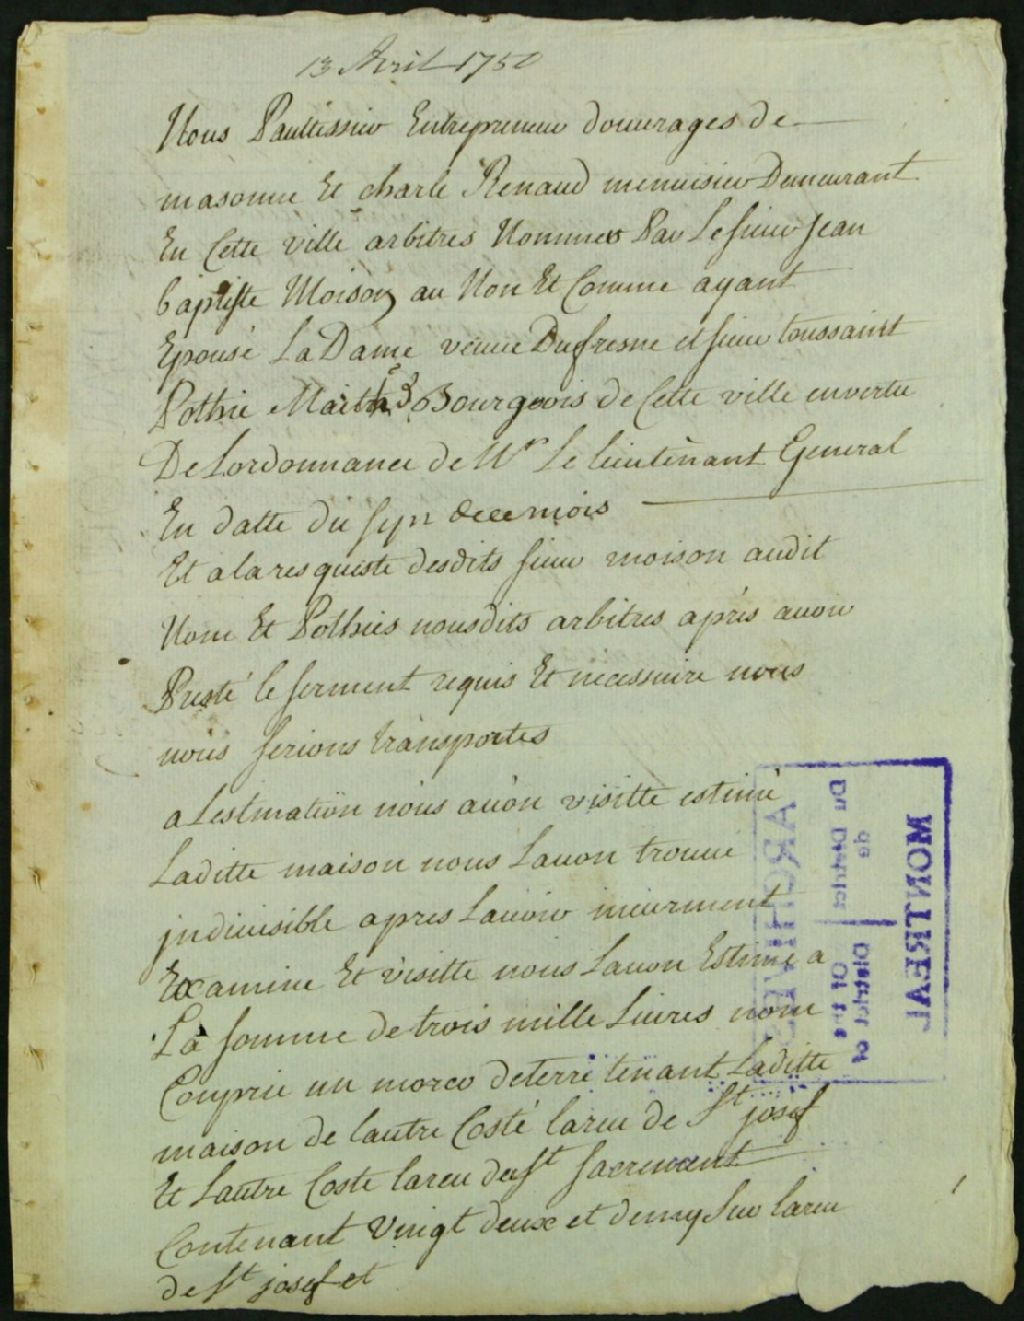 13 Avril 1750
Nous Paul tessier Entrepreneur douurages de
masonne Et charle Renaud menuisier Demeurant
En Cette ville arbitres Nommes Par Le sieur Jean
baptiste Moison au Non Et Comme ayant
Epousé La Dame veuue Dufresne et sieur toussaint
Pothie Bourgeois de Cette ville en vertu
De Lordonnance de Mr Le lieutenant General
En datte du de ce mois
Et a la resqueste desdits sieur moison audit
Nom Et Pothies nousdits arbitres aprés auoir
Presté le serment requis Et nécessaire nous
nous serions transportes
a Lestmation nous auon visitte estimé
Laditte maison nous Lauon trouué
jndiuisible apres Lauoir meurment
Examine Et visitte nous Lauon Estimé a
La somme de trois mille Liures nom
Comprie un morco de terre tenant Laditte
maison de lautre Costé lareu de St josef
Et Lautre Coste lareu du St sacrement
Contenant vingt deux et demy sur lareu
de St josef et
ARCHIVES
Du District
de
District of
Of the
MONTREAL